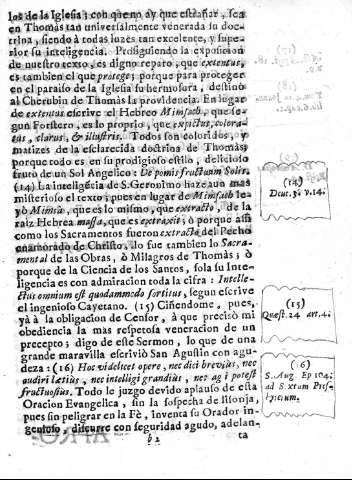 los de la Iglesia; con que no ay que estrañar, sea
en Thomàs tan universalmente venerada su doc-
trina, siendo à todas luzes tan excelente, y supe-
rior su inteligencia. Prosiguiendo la exposicion
de nuestro texto, es digno reparo, que extentus,
es tambien el que protege; porque para proteger
en el paraiso de la Iglesia su hermosura, destinò
al Cherubin de Thomàs la providencia. En lugar
de extentus escrive el Hebreo Mimsach, que se-
gun Forstero, es lo proprio, que expictus, colora-
tus, clarus, & illustris. Todos son coloridos, y
matizes de la esclarecida doctrina de Thomàs;
porque todo es en su prodigioso estilo, delicioso
fruto de un Sol Angelico: De pomis fructuum Solis.
(14) La inteligecia de S. Geronimo haze aun mas
misterioso el texto; pues en lugar de Mimsach le-
yò Mimsia, que es lo mismo, que extracto, de la
raiz Hebrea massa, que es extraxit; ò porque assi
como los Sacramentos fueron extracto del Pecho
enamorado de Christo, lo fue tambien lo Sacra-
mental de las Obras, ò Milagros de Thomàs; ò
porque de la Ciencia de los Santos, sola su Inte-
ligencia es con admiracion toda la cifra: Intelle-
ctus omnium est quodammodo sortitus, segun escrive
el ingenioso Cayetano. (15) Ciñendome, pues,
yà à la obligacion de Censor, à que precisò mi
obediencia la mas respetosa veneracion de un
precepto; digo de este Sermon, lo que de una
grande maravilla escriviò San Agustin con agu-
deza: (16) Hoc videlicet opere, nec dici brevius, nec
audiri lætius, nec intelligi grandius, nec agi potest
fructuosius. Todo le juzgo devido aplauso de esta
Oracion Evangelica, sin la sospecha de lisonja,
pues sin peligrar en la Fè, inventa su Orador in-
genioso, discurre con seguridad agudo, adelan-
b 2 ta
(14)
Deut. 33. v. 14.
(15)
Quæst. 24 art. 4.
(16)
S. Aug. Ep 104.
ad Sixtum Pres-
byterum.